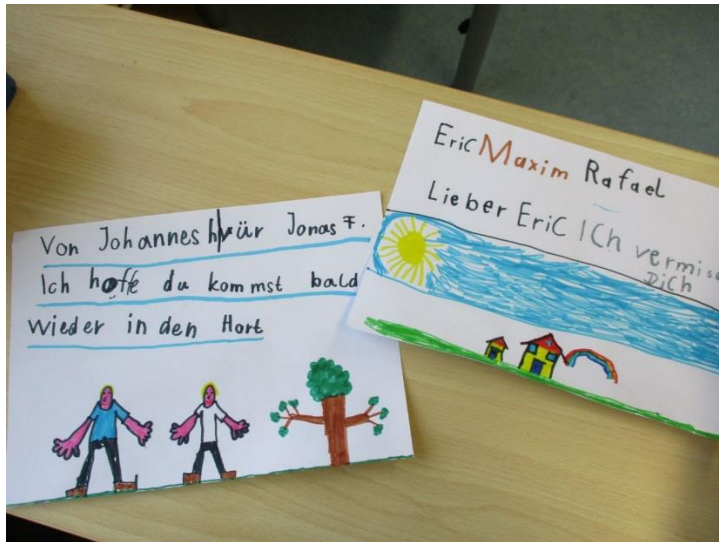 Von Johannes vür Jonas F.
Ich hoffe du kommst bald
wieder in den Hort
Eric Maxim Rafael
Lieber Eric ICh vermise
DiCh